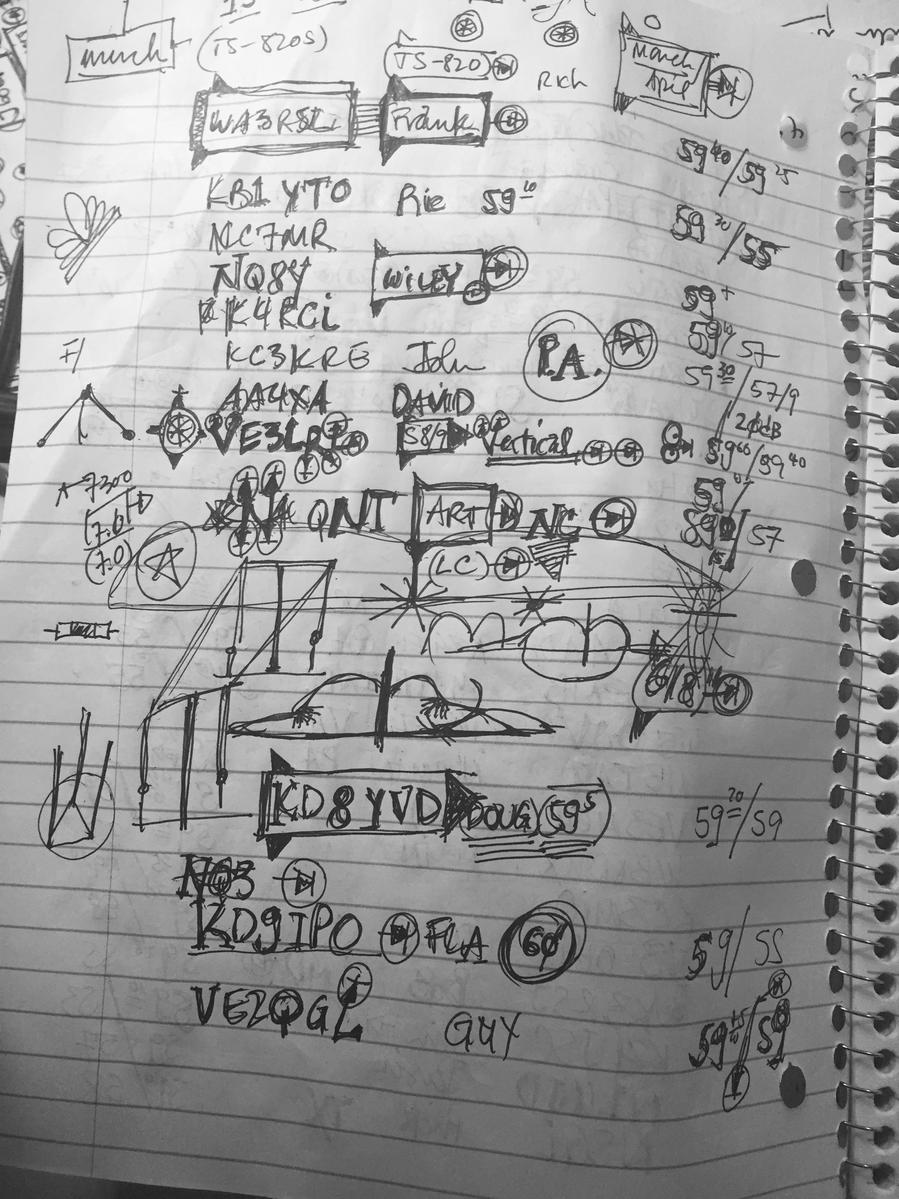 March (TS-820S) (TS-820) Rich March April
WA3RSL Frank
59 40/59 25
KB1YTO Ric 59 10
NC7MR 59 30/55
NQ8Y WILEY 59+
KK4RCi 59 10/57
KC3KRE John P.A. 59 30/57/9
AA4XA DAViD 20dB
VE3LRP S8/9 Vertical 59 60/59 40
7300
N4QNT ART NC 59/57
7.0
(7.0)
(LC)
KD8YVD DOUG 59 5 59 20/59
NQ3
KD9IPO FLA 60 59/55
VE2QGL GUY 59/59